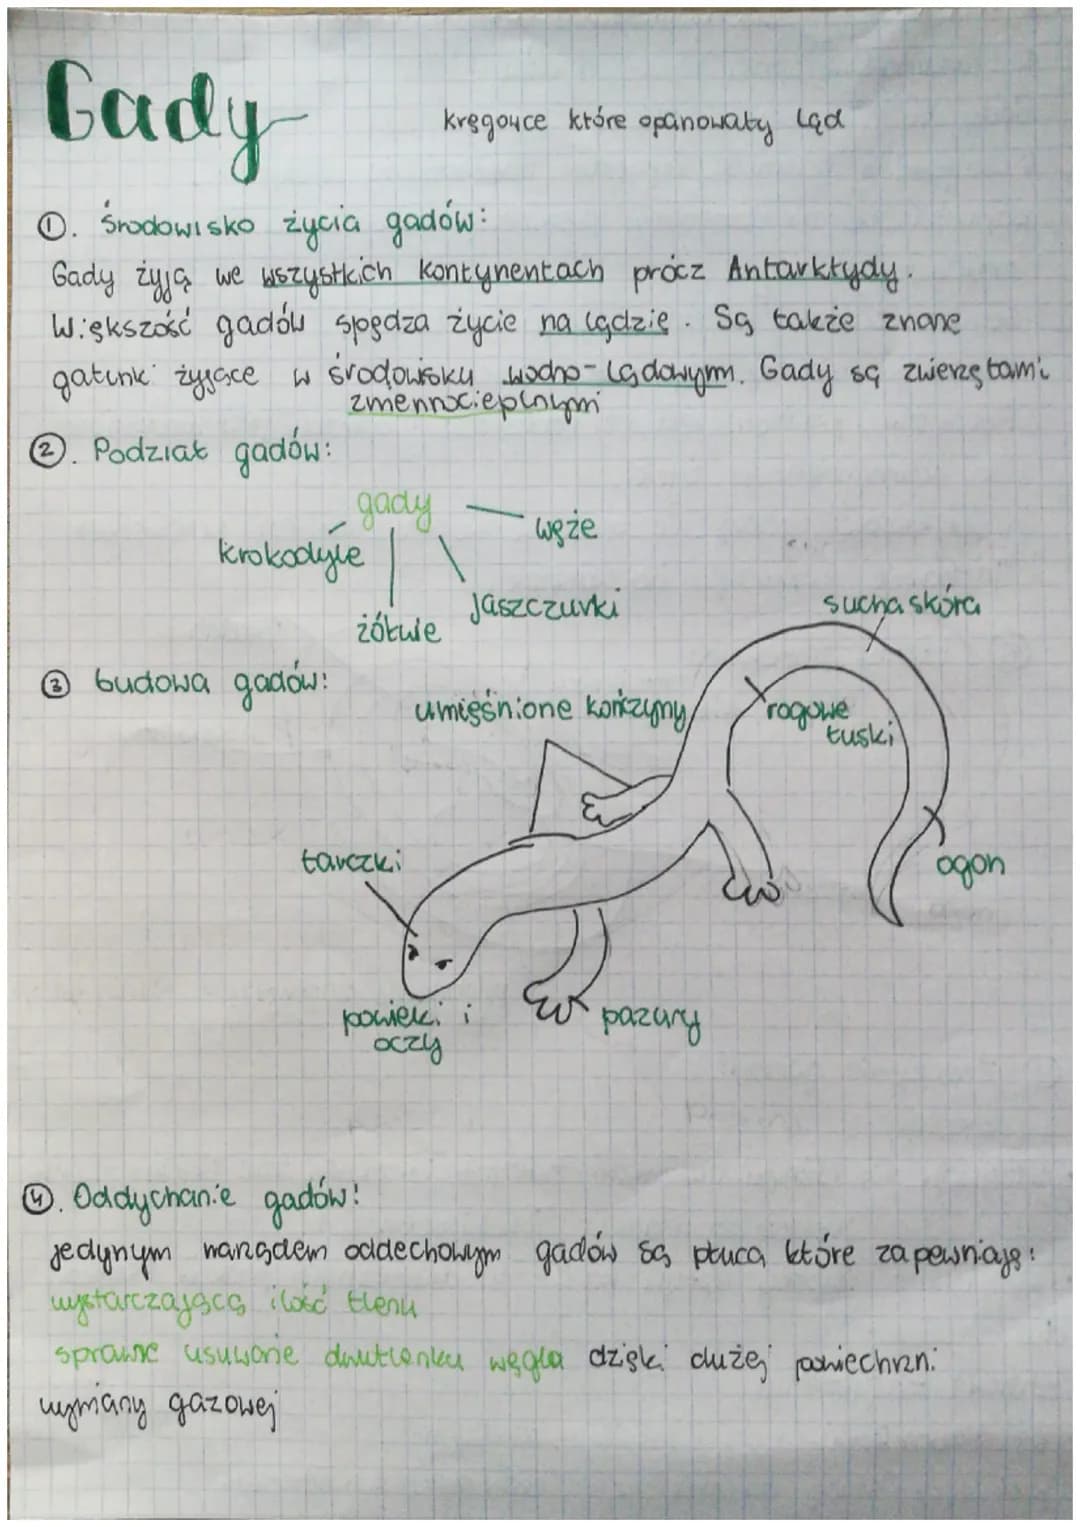 Gady
kręgowce które opanowały ląd
①. Środowisko życia gadów:
Gady żyją we wszystkich kontynentach prócz Antarktydy.
Większość gadów spędza życie na lądzie. Są także znane
gatunki żyjące w środowisku wodno-lądowym. Gady są zwierzętami
zmennocieplnymi
②. Podział gadów:
gady
węże
krokodyle
jaszczurki
żółwie
sucha skóra
③ budowa gadów:
umięśnione kończyny
rogowe
łuski
tarczki
ogon
powieki i
oczy
pazury
④. Oddychanie gadów:
jedynym narządem oddechowym gadów są płuca które zapewniają:
wystarczającą ilość tlenu
sprawne usuwanie dwutlenku węgla dzięki dużej powiechrzni
wymiany gazowej